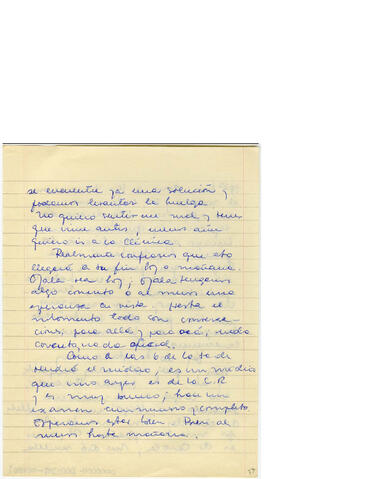 se encuentre ya una solución y
podamos levantar la huelga
No quiero sentirme mal y tener
que irme antes, menos aún
quiero ir a la Clínica.
Realmente confiamos que esto
llegará a su fin hoy o mañana.
Ojalá sea hoy, Ojalá tengamos
algo concreto o al menos una
esperanza en vista. Hasta el
momento todo son conversa-
ciones; para allá y para acá, nada
concreto.
Como a las 6 de la tarde
el médico, es un médico
que vino ayer es de la C.R
y es muy bueno; hace un
examen minucioso y completo.
Esperamos estar bien. Pues al
menos hasta mañana.
57